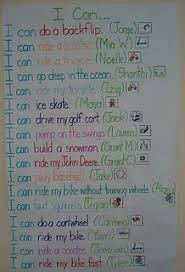 I Can...
I can do a backflip. (Jorge)
I can ride a scooter. (Mia W)
I can ride a bicycle. (Noelle)
I can go deep in the ocean. (Shanthi)
I can ride my (Izzy)
I can ice skate. (Maya)
I can drive my golf cart. (Jack)
I can pump on the swings. (Lauren)
I can build a snowman. (Grant M)
I can ride my John Deere. (Grant C)
I can play baseball. (Jake)
I can ride my bike without training wheels.
I can find squirrels. (Tegan)
I can do a cartwheel. (Cameron)
I can ride my bike.
I can ride a scooter.
I can ride my bike fast. (Tyler)